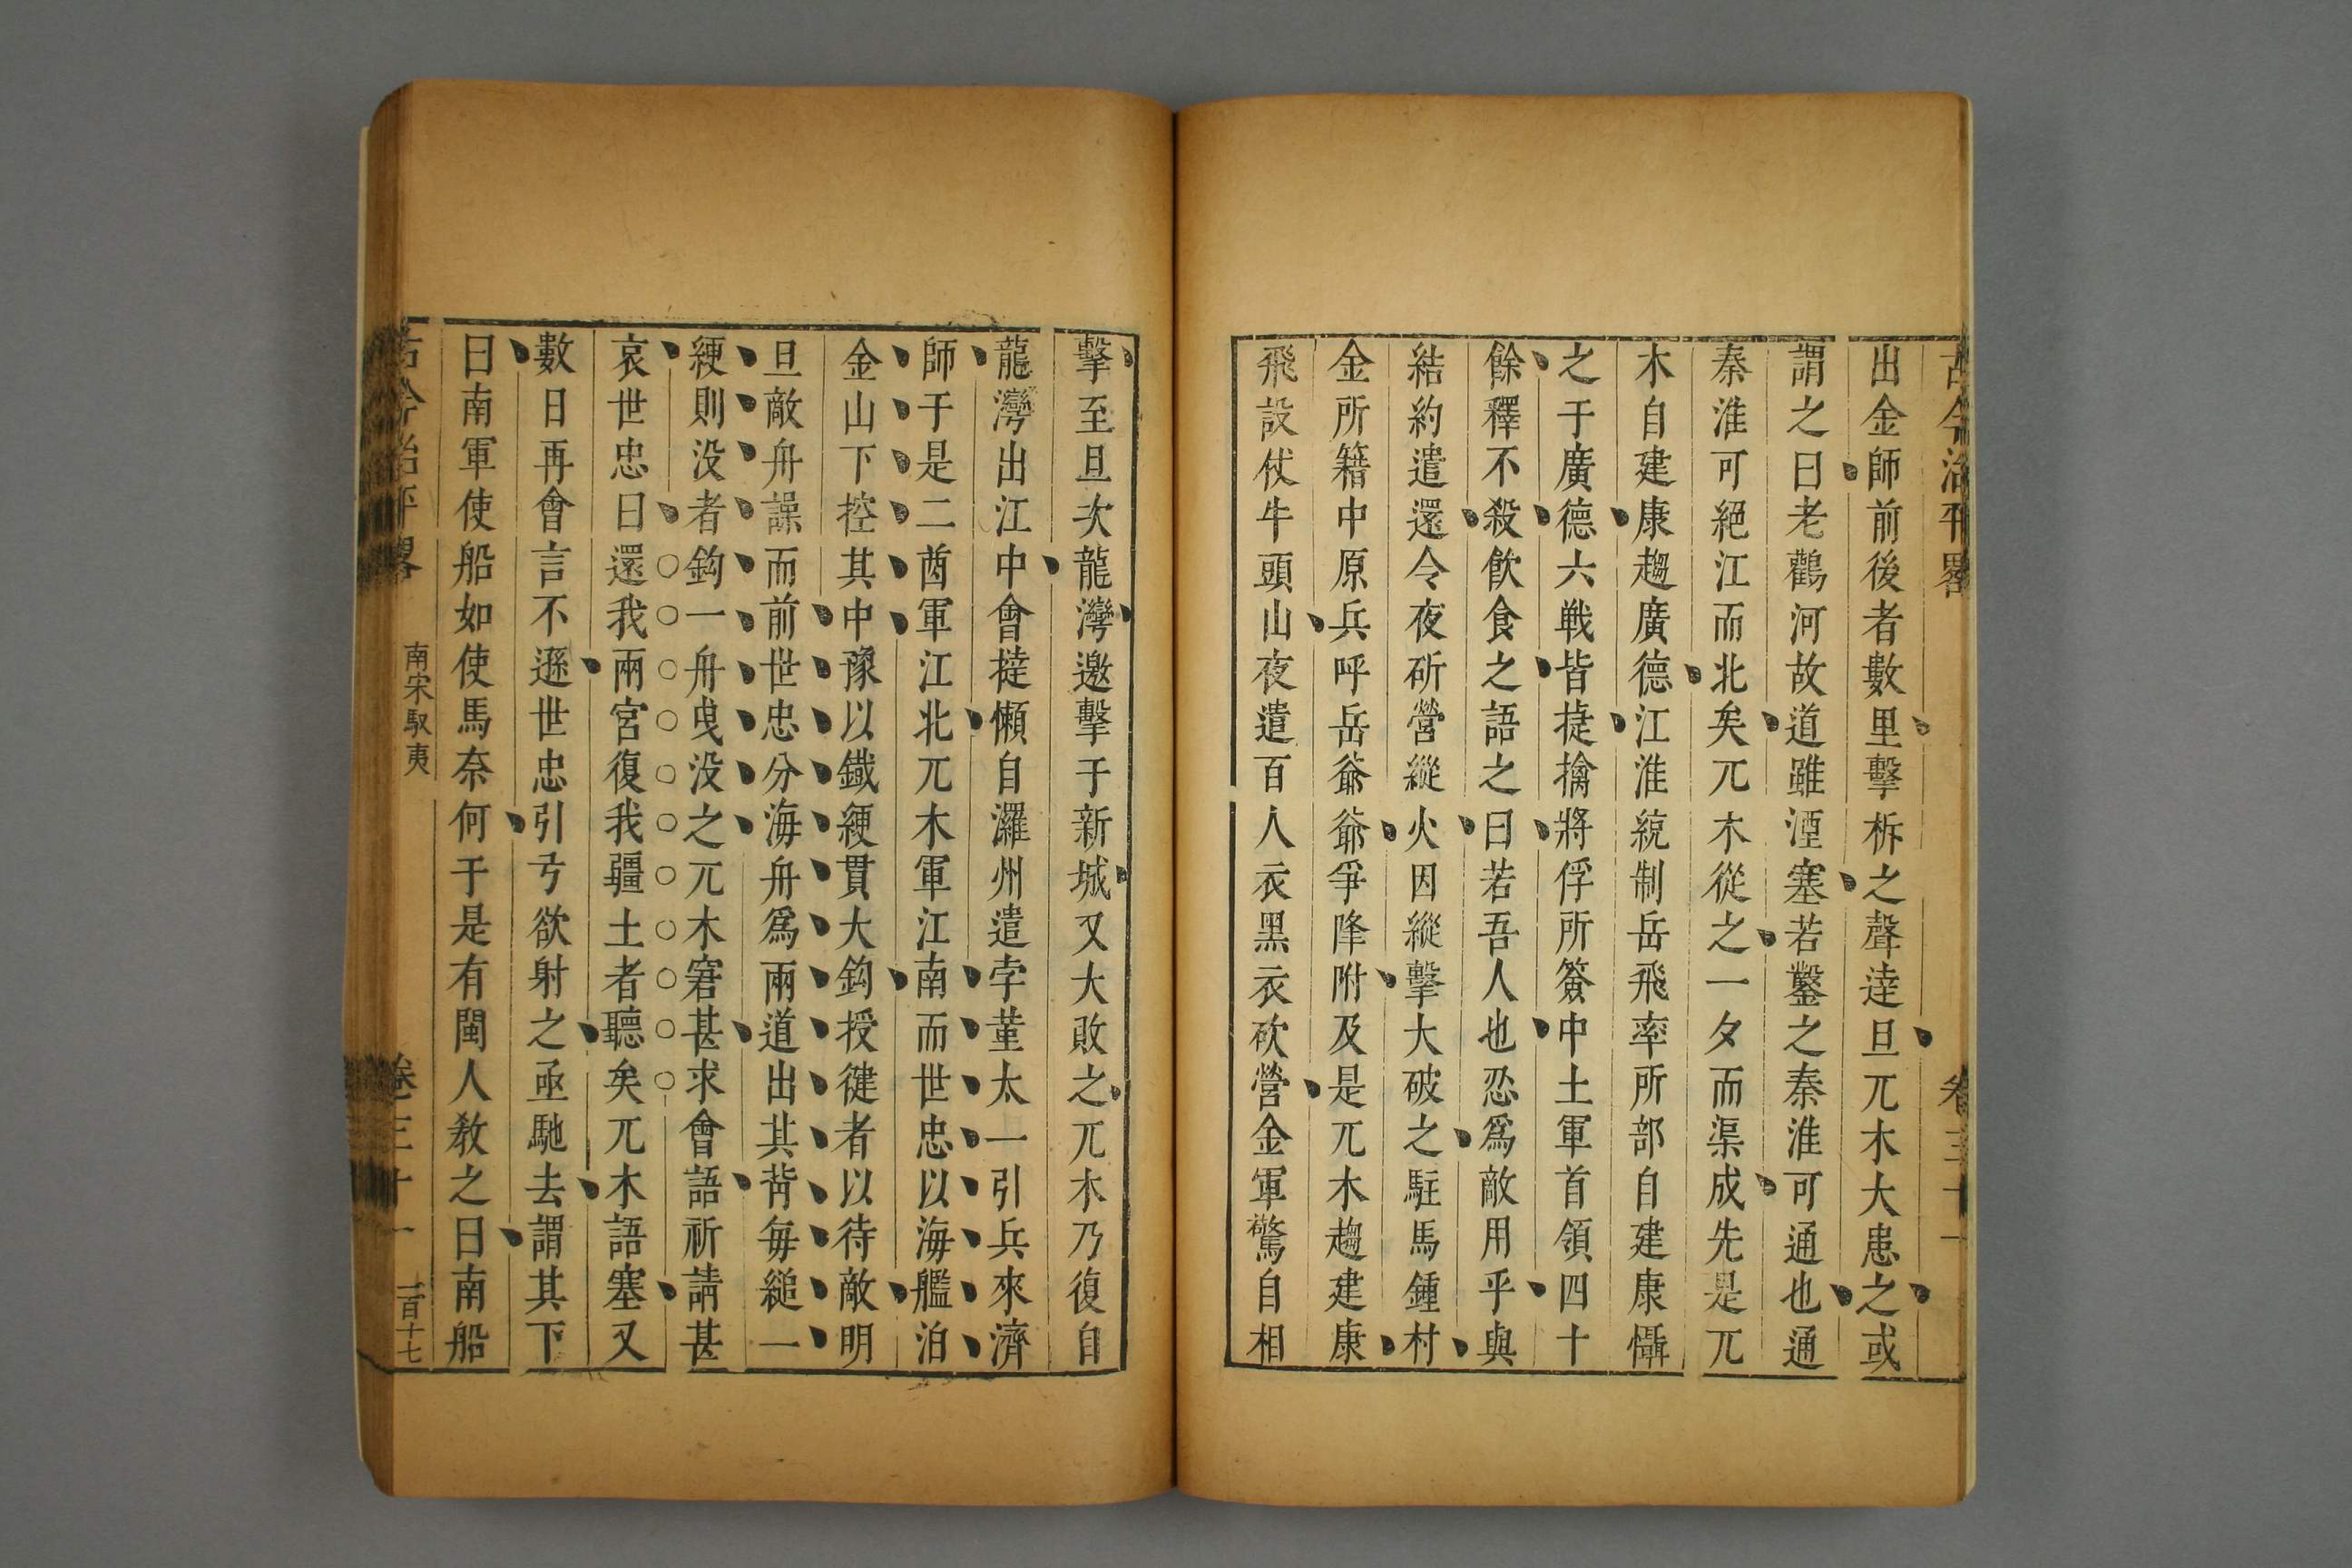 古今治平畧
卷三十一
出金師前後者數里擊柝之聲逹旦兀朮大患之或
謂之曰老鸛河故道雖湮塞若鑿之秦淮可通也通
秦淮可絕江而北矣兀朮從之一夕而渠成先是兀
朮自建康趨廣德江淮統制岳飛率所部自建康懾
之于廣德六戰皆捷擒將俘所簽中土軍首領四十
餘釋不殺飲食之語之曰若吾人也忍爲敵用乎與
結約遣還令夜斫營縱火因縱擊大破之駐馬鍾村
金所籍中原兵呼岳爺爺爭降附及是兀朮趨建康
飛設伏牛頭山夜遣百人衣黑衣砍營金軍驚自相
擊至旦次龍灣邀擊于新城又大敗之兀朮乃復自
龍灣出江中會撻懶自濰州遣孛堇太一引兵來濟
師于是二酋軍江北兀朮軍江南而世忠以海艦泊
金山下控其中豫以鐵綆貫大鈎授徤者以待敵明
旦敵舟譟而前世忠分海舟爲兩道出其背毎縋一
綆則没者鈎一舟曵没之兀朮窘甚求會語祈請甚
哀世忠曰還我兩宮復我疆土者聽矣兀朮語塞又
數日再會言不遜世忠引弓欲射之亟馳去謂其下
曰南軍使船如使馬奈何于是有閩人教之曰南船
古今治平畧
南宋馭夷
卷三十一
一百十七